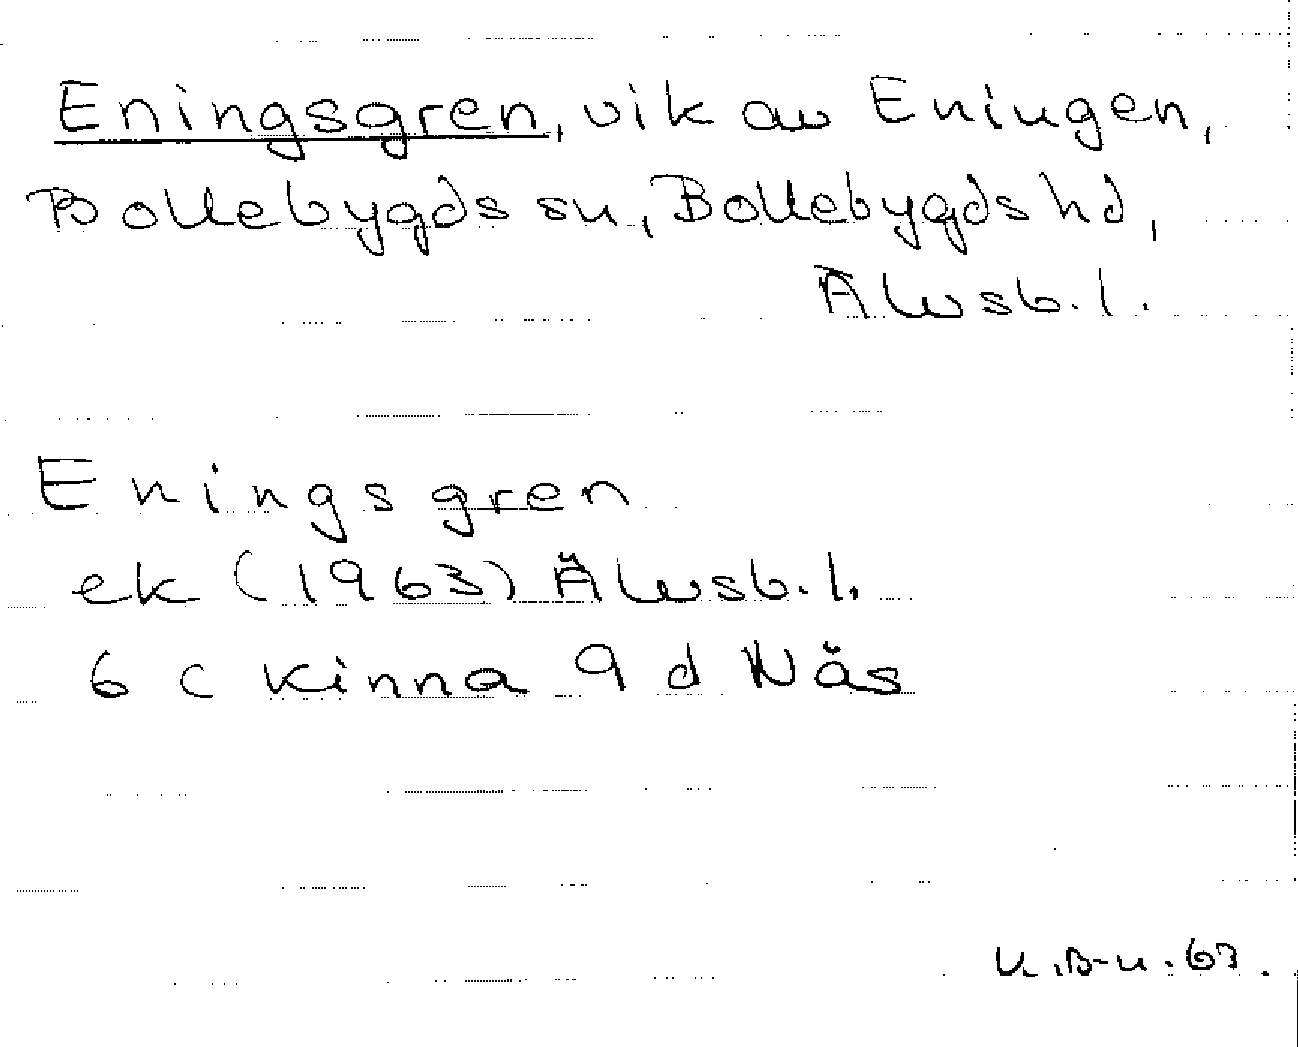 Eningsgren, vik av Eningen,
Bollebygds sn, Bollebygds hd,
Älvsb. l.
Eningsgren
ek (1963) Älvsb. l.
6 c Kinna 9 d Nås